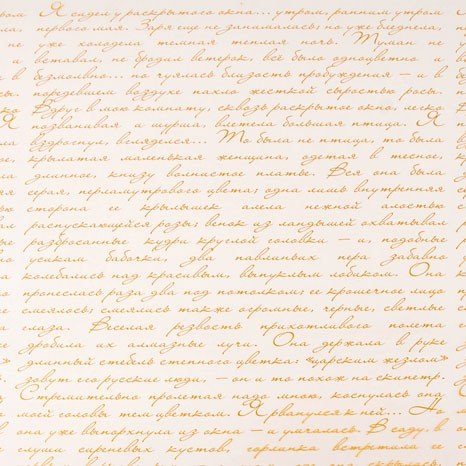 ром. Я сидел у раскрытого окна... утром, ранним утром
ла, первого мая. Заря еще не занималась; но уже бледнела,
не уже холодела темная теплая ночь. Туман не
и вставал, не бродил ветерок, всё было одноцветно и
в безмолвно... но чуялась близость пробуждения – и в
сы. поредевшем воздухе пахло жесткой сыростью росы.
ко Вдруг в мою комнату, сквозь раскрытое окно, легко
Я позванивая и шурша, влетела большая птица. Я
ла вздрогнул, вгляделся... То была не птица, то была
ое, крылатая маленькая женщина, одетая в тесное,
ла длинное, книзу волнистое платье. Вся она была
яя серая, перламутрового цвета; одна лишь внутренняя
ью сторона ее крылышек алела нежной алостью
ал распускающейся розы; венок из ландышей охватывал
ые разбросанные кудри круглой головки – и, подобные
но усикам бабочки, два павлиньих пера забавно
на колебались над красивым, выпуклым лобиком. Она
пронеслась раза два под потолком; ее крошечное лицо
смеялось; смеялись также огромные, черные, светлые
глаза. Веселая резвость прихотливого полета
дробила их алмазные лучи. Она держала в руке
длинный стебель степного цветка: «царским жезлом»
зовут его русские люди, – он и то похож на скипетр.
Стремительно пролетая надо мною, коснулась она
моей головы тем цветком. Я рванулся к ней... Но
она уже выпорхнула из окна – и умчалась. В саду, в
глуши сиреневых кустов, горлинка встретила ее